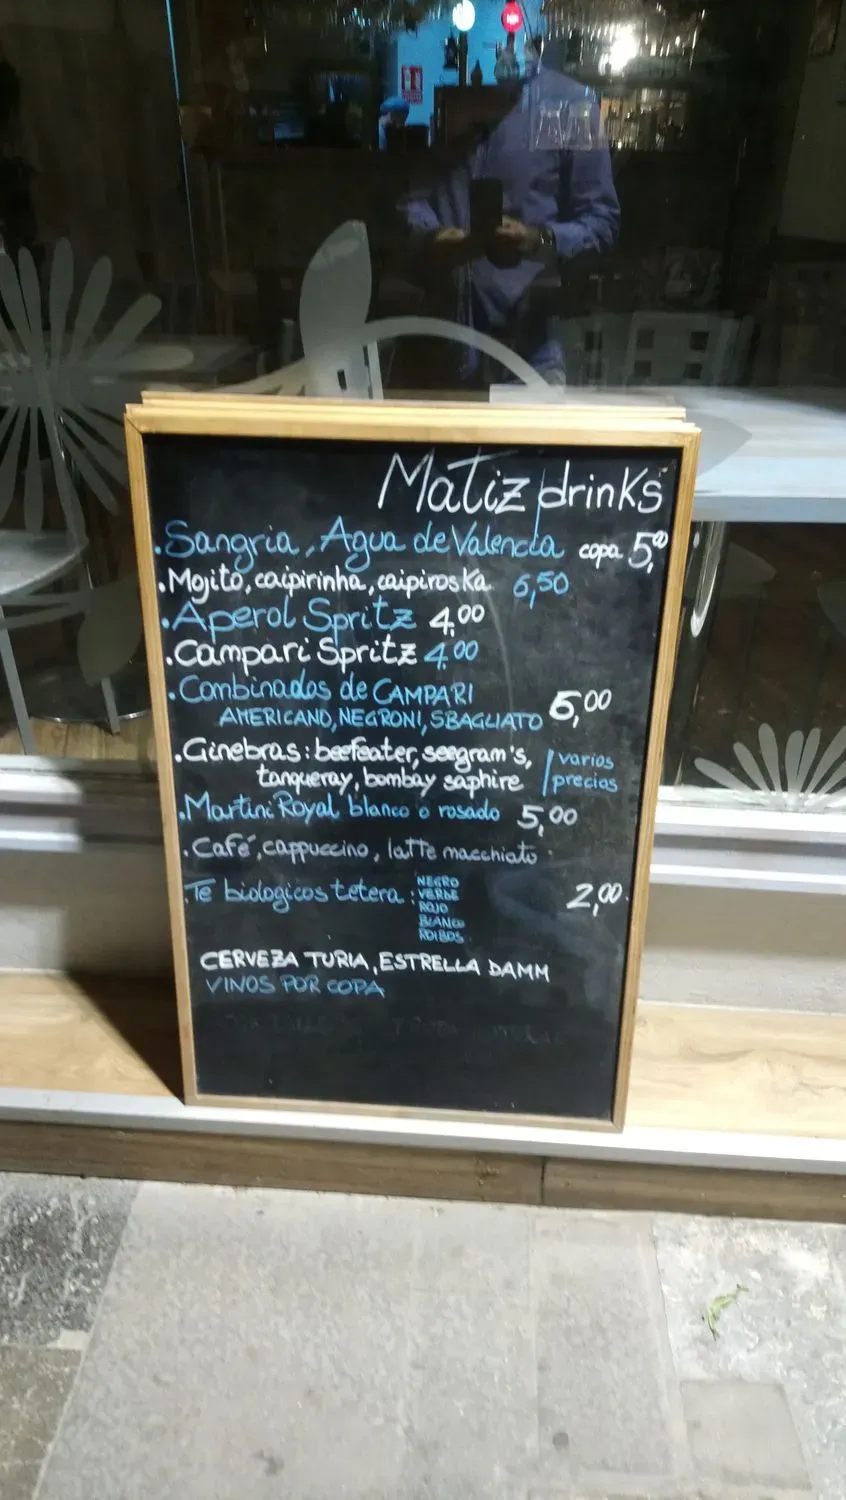 Matiz drinks
. Sangria, Agua de Valencia copa 5,00
. Mojito, caipirinha, caipiroska 6,50
. Aperol Spritz 4,00
. Campari Spritz 4,00
. Combinados de CAMPARI
AMERICANO, NEGRONI, SBAGLIATO 6,00
. Ginebras: beefeater, seegram's, varios
tanqueray, bombay saphire precios
. Martini Royal blanco o rosado 5,00
. Café, cappuccino, latte macchiato
. Te biologicos tetera: NEGRO 2,00
VERDE
ROJO
BLANCO
ROIBOS
CERVEZA TURIA, ESTRELLA DAMM
VINOS POR COPA